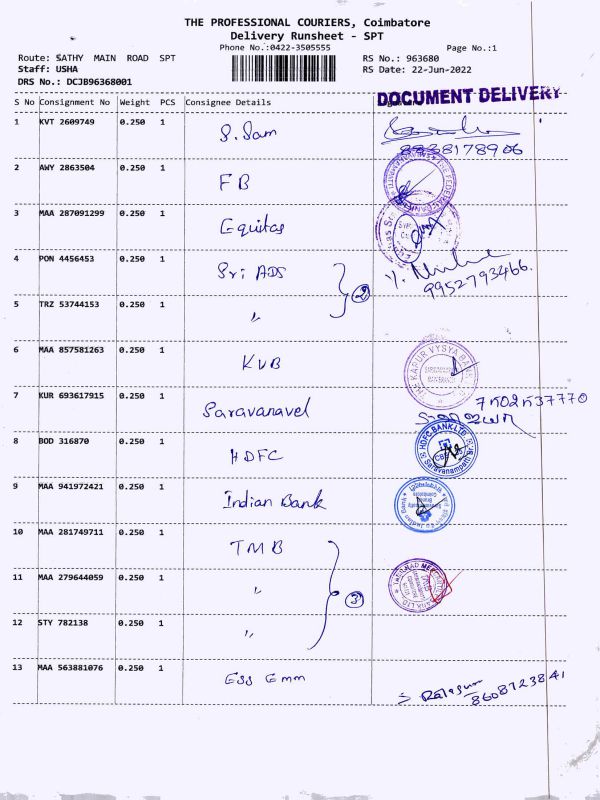 THE PROFESSIONAL COURIERS, Coimbatore
Delivery Runsheet - SPT
Phone No.:0422-3505555
Page No.:1
Route: SATHY MAIN ROAD SPT
RS No.: 963680
Staff: USHA
RS Date: 22-Jun-2022
DRS No.: DCJB96368001
S No Consignment No Weight PCS Consignee Details
DOCUMENT DELIVERY
1 KVT 2609749 0.250 1 S. Sam
8838178906
2 AWY 2863504 0.250 1 FB
THE FEDERAL BANK
3 MAA 287091299 0.250 1 Equitas
4 PON 4456453 0.250 1 Sri ADS
2
9952793466.
5 TRZ 53744153 0.250 1 "
6 MAA 857581263 0.250 1 KVB
THE KARUR VYSYA BANK
7 KUR 693617915 0.250 1 Saravanavel
7502537770
8 BOD 316870 0.250 1 HDFC
HDFC BANK LTD.
Saravanampatti
9 MAA 941972421 0.250 1 Indian Bank
10 MAA 281749711 0.250 1 TMB
11 MAA 279644059 0.250 1 "
3
TAMILNAD MERCANTILE BANK LTD.
12 STY 782138 0.250 1 "
13 MAA 563881076 0.250 1 Ess Emm
8608723841